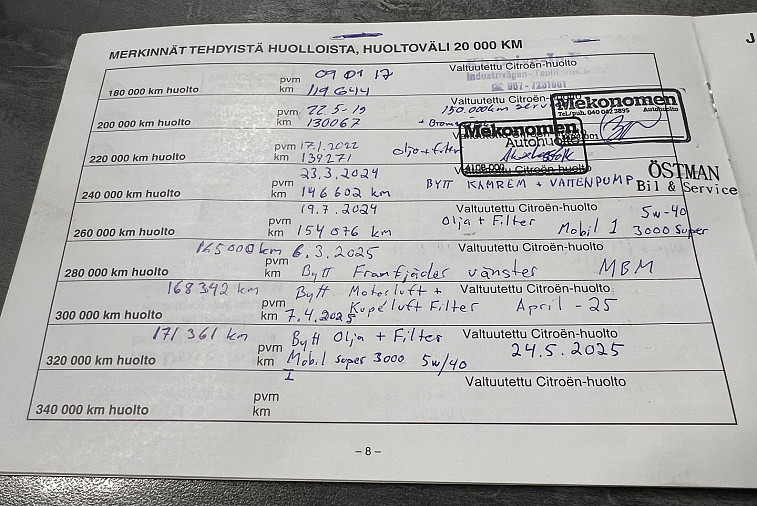 J
MERKINNÄT TEHDYISTÄ HUOLLOISTA, HUOLTOVÄLI 20 000 KM
pvm 09 01 17 Valtuutettu Citroën-huolto
180 000 km huolto km 119 644
pvm 22.5-19 Valtuutettu Citroën 150.000km
200 000 km huolto km 130067
Mekonomen
Autohuolto
Tel./puh. 040 042 3895
pvm 17.1.2022
220 000 km huolto km 139271 olja + filter
Mekonomen
Autohuolto
23.3.2024 Citroën-huolto
pvm
240 000 km huolto km 146 602 km BYTT KAMREM + VATTENPUMP
ÖSTMAN
Bil & Service
19.7.2024 Valtuutettu Citroën-huolto 5w-40
pvm Olja + Filter
260 000 km huolto km 154 076 km Mobil 1 3000 Super
165000 km 6.3.2025 Valtuutettu Citroën-huolto
pvm
280 000 km huolto km Bytt Framfjäder vänster MBM
168 342 km Bytt Motorluft + Valtuutettu Citroën-huolto
pvm Kupéluft Filter April - 25
300 000 km huolto km 7.4.2025
171 361 km Bytt Olja + Filter Valtuutettu Citroën-huolto
pvm 24.5.2025
320 000 km huolto km Mobil super 3000 5w/40
I
Valtuutettu Citroën-huolto
pvm
340 000 km huolto km
– 8 –